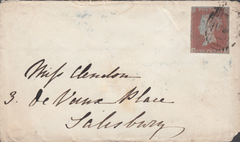 Miss Clendon
3. de Vaux Place
Salisbury